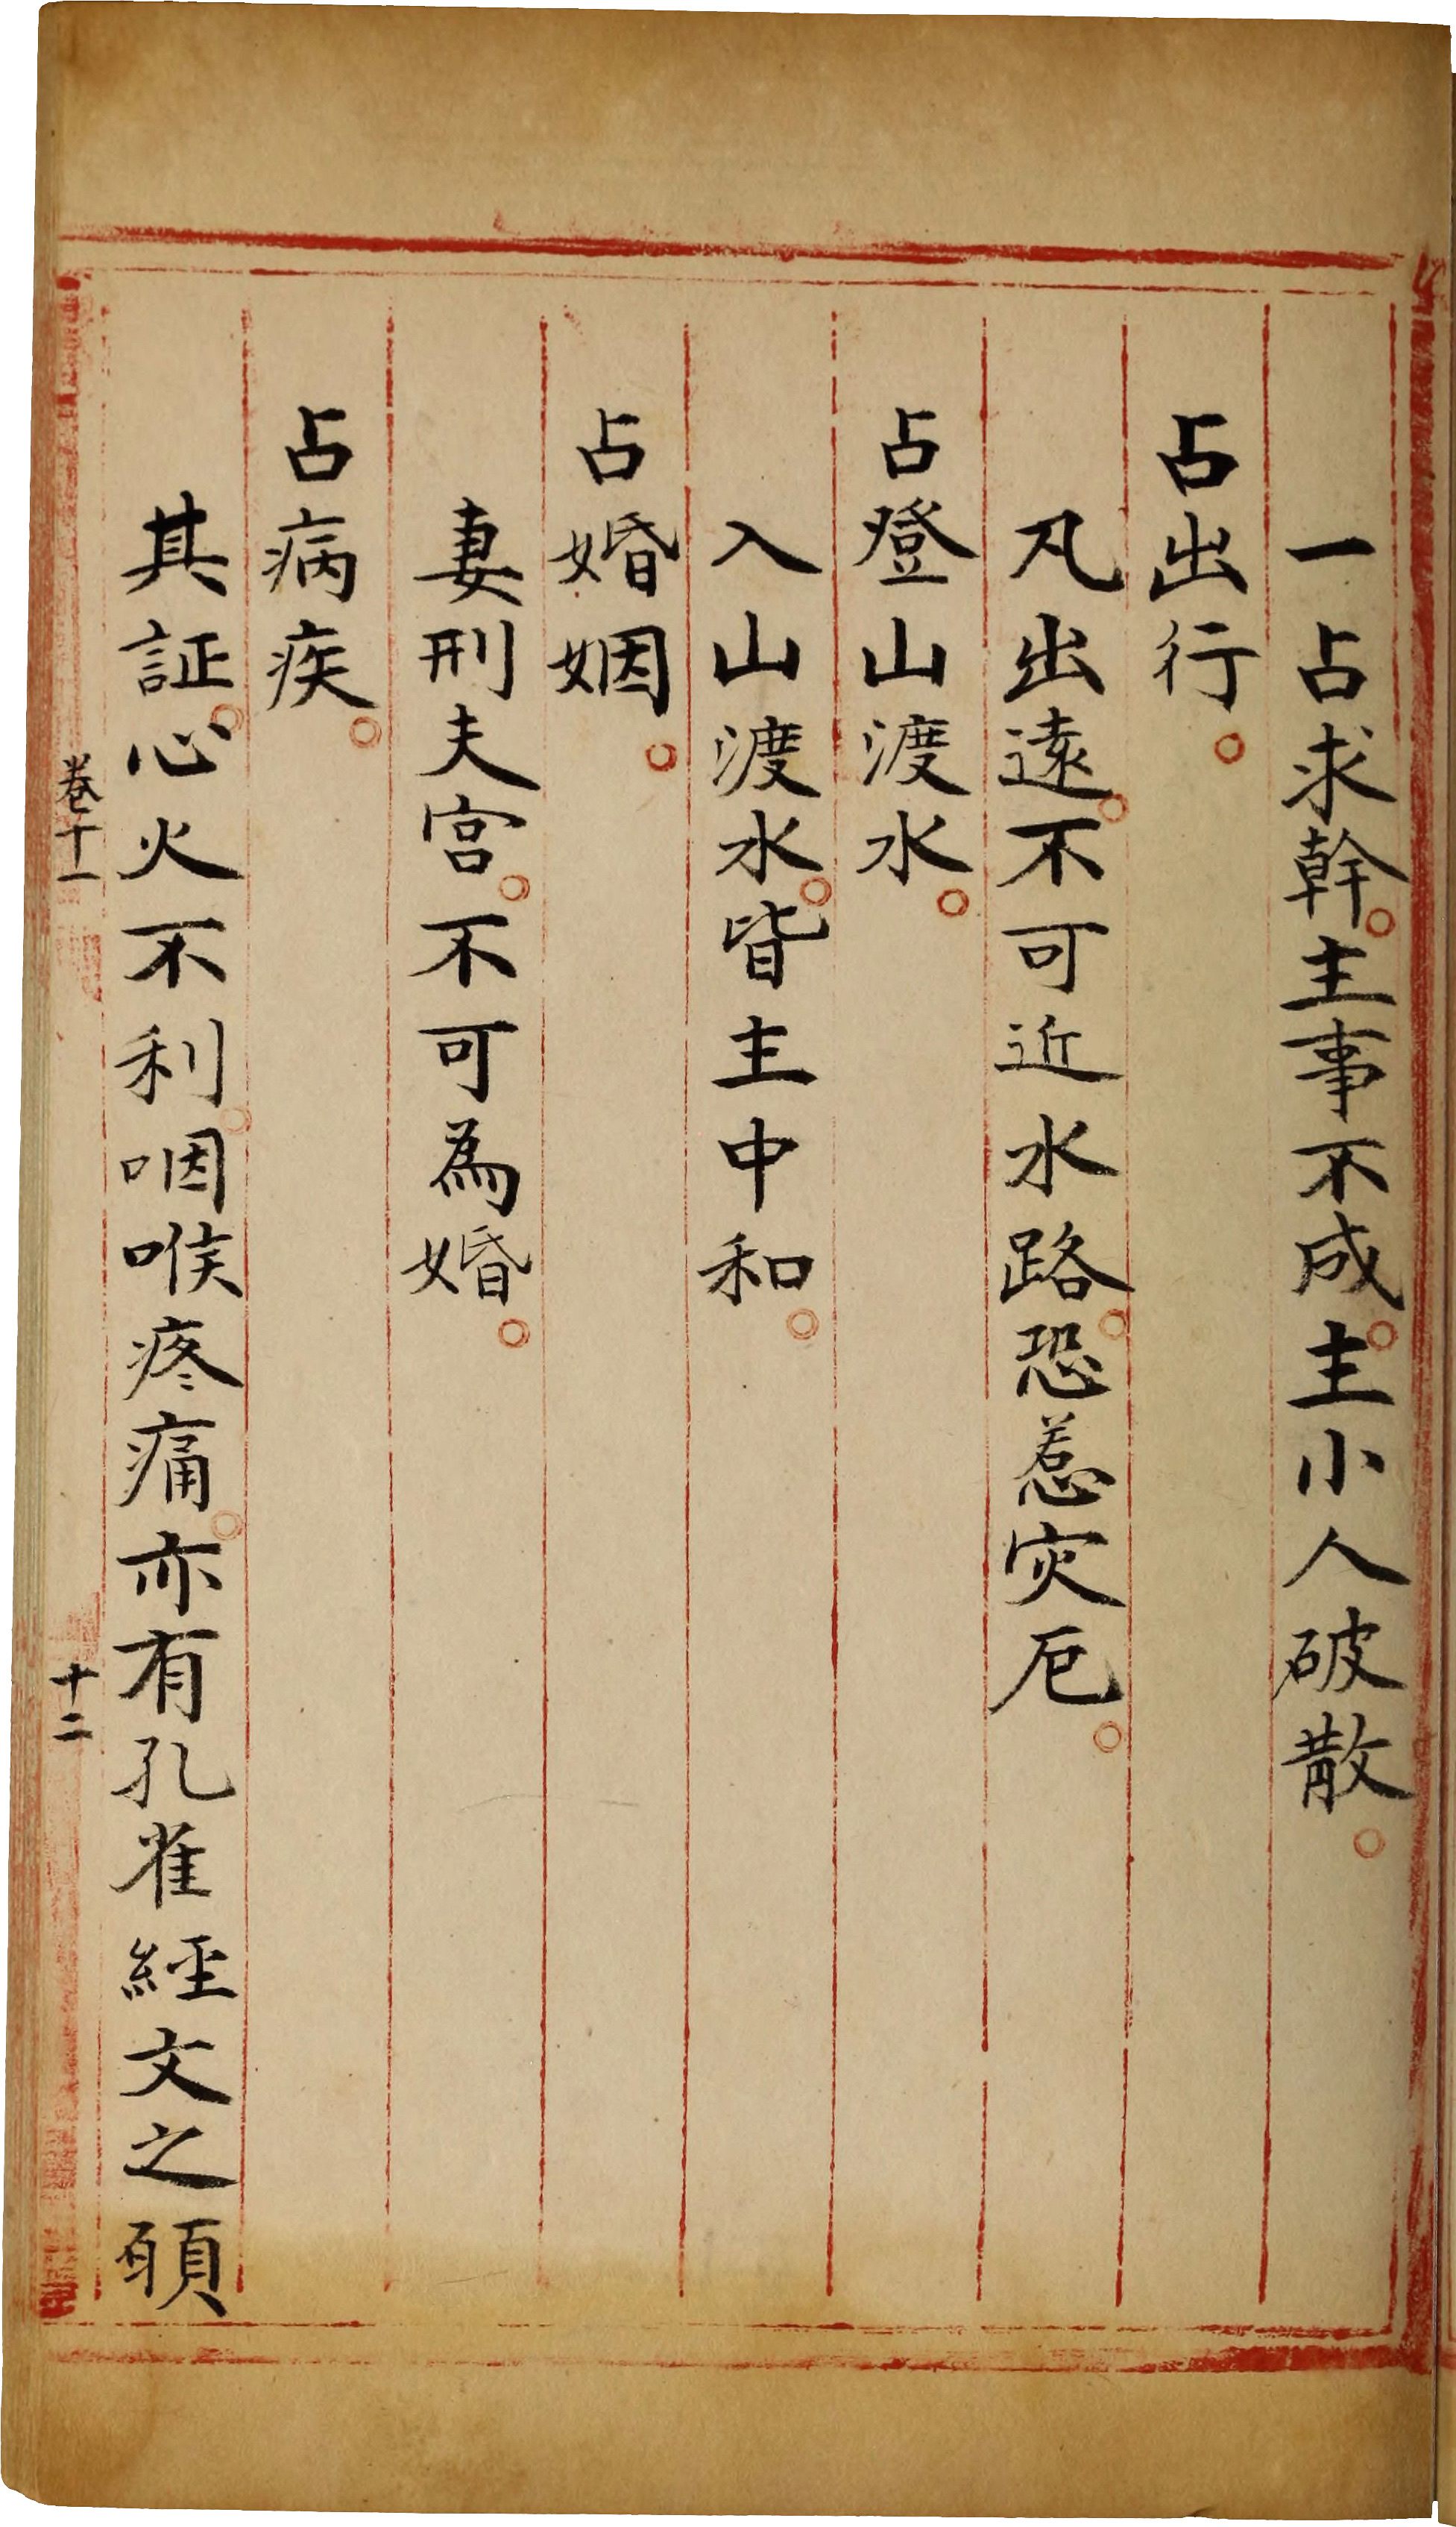 一占求幹。主事不成。主小人破散。
占出行。
凡出遠。不可近水路。恐惹灾厄。
占登山渡水。
入山渡水。皆主中和。
占婚姻。
妻刑夫宫。不可為婚。
占病疾。
其証。心火不利。咽喉疼痛。亦有孔雀經文之頭
卷十一
十二